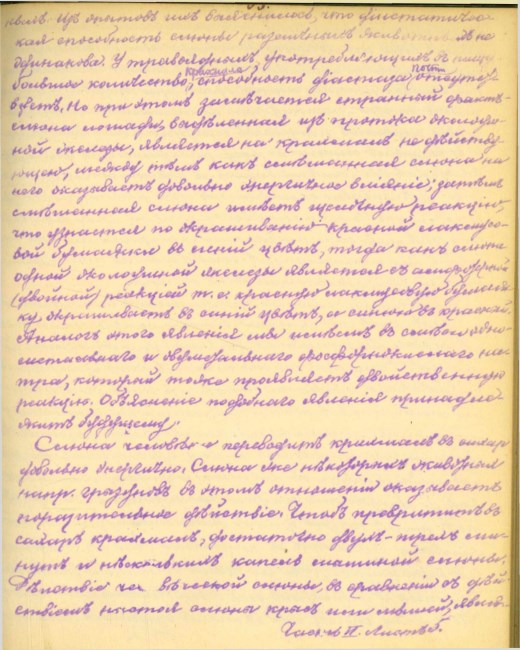 ныхъ. Изъ опытовъ ихъ выяснилось, что діастатичес-
кая способность слюны различныхъ животныхъ не
одинакова. У травоядныхъ, употребляющихъ въ пищу
большое количество крахмала, способность діастаза почти отсут-
ствуетъ. Но при этомъ замѣчается странный фактъ:
слюна лошади, выдѣленная изъ протока околоуш-
ной железы, является на крахмалъ не дѣйству-
ющею, между тѣмъ какъ смѣшанная слюна на
него оказываетъ довольно энергичное вліяніе; затѣмъ
смѣшанная слюна имѣетъ щелочную реакцію,
что узнается по окрашиванію красной лакмусо-
вой бумажки въ синій цвѣтъ, тогда какъ слюна
одной околоушной железы является съ амфотерной
(двойной) реакціей т. е. красную лакмусовую бумаж-
ку окрашиваетъ въ синій цвѣтъ, а синюю въ красный.
Аналогъ этого явленія мы имѣемъ въ смѣси одно-
металльнаго и двуметальнаго фосфорнокислаго нат-
тра, который тоже проявляетъ двойственную
реакцію. Объясненіе подобнаго явленія принадле-
житъ будущему.
Слюна человѣка переводитъ крахмалъ въ сахаръ
довольно энергично. Слюна же нѣкоторыхъ животныхъ
напр. грызуновъ въ этомъ отношеніи оказываетъ
поразительное дѣйствіе. Чтобъ превратить въ
сахаръ крахмалъ, достаточно двухъ-трехъ ми-
нутъ и нѣсколькихъ капель мышиной слюны.
Дѣйствіе человѣческой слюны, въ сравненіи съ дѣй-
ствіемъ слюны крысъ или мышей, являет-
Часть II. Листъ 5.